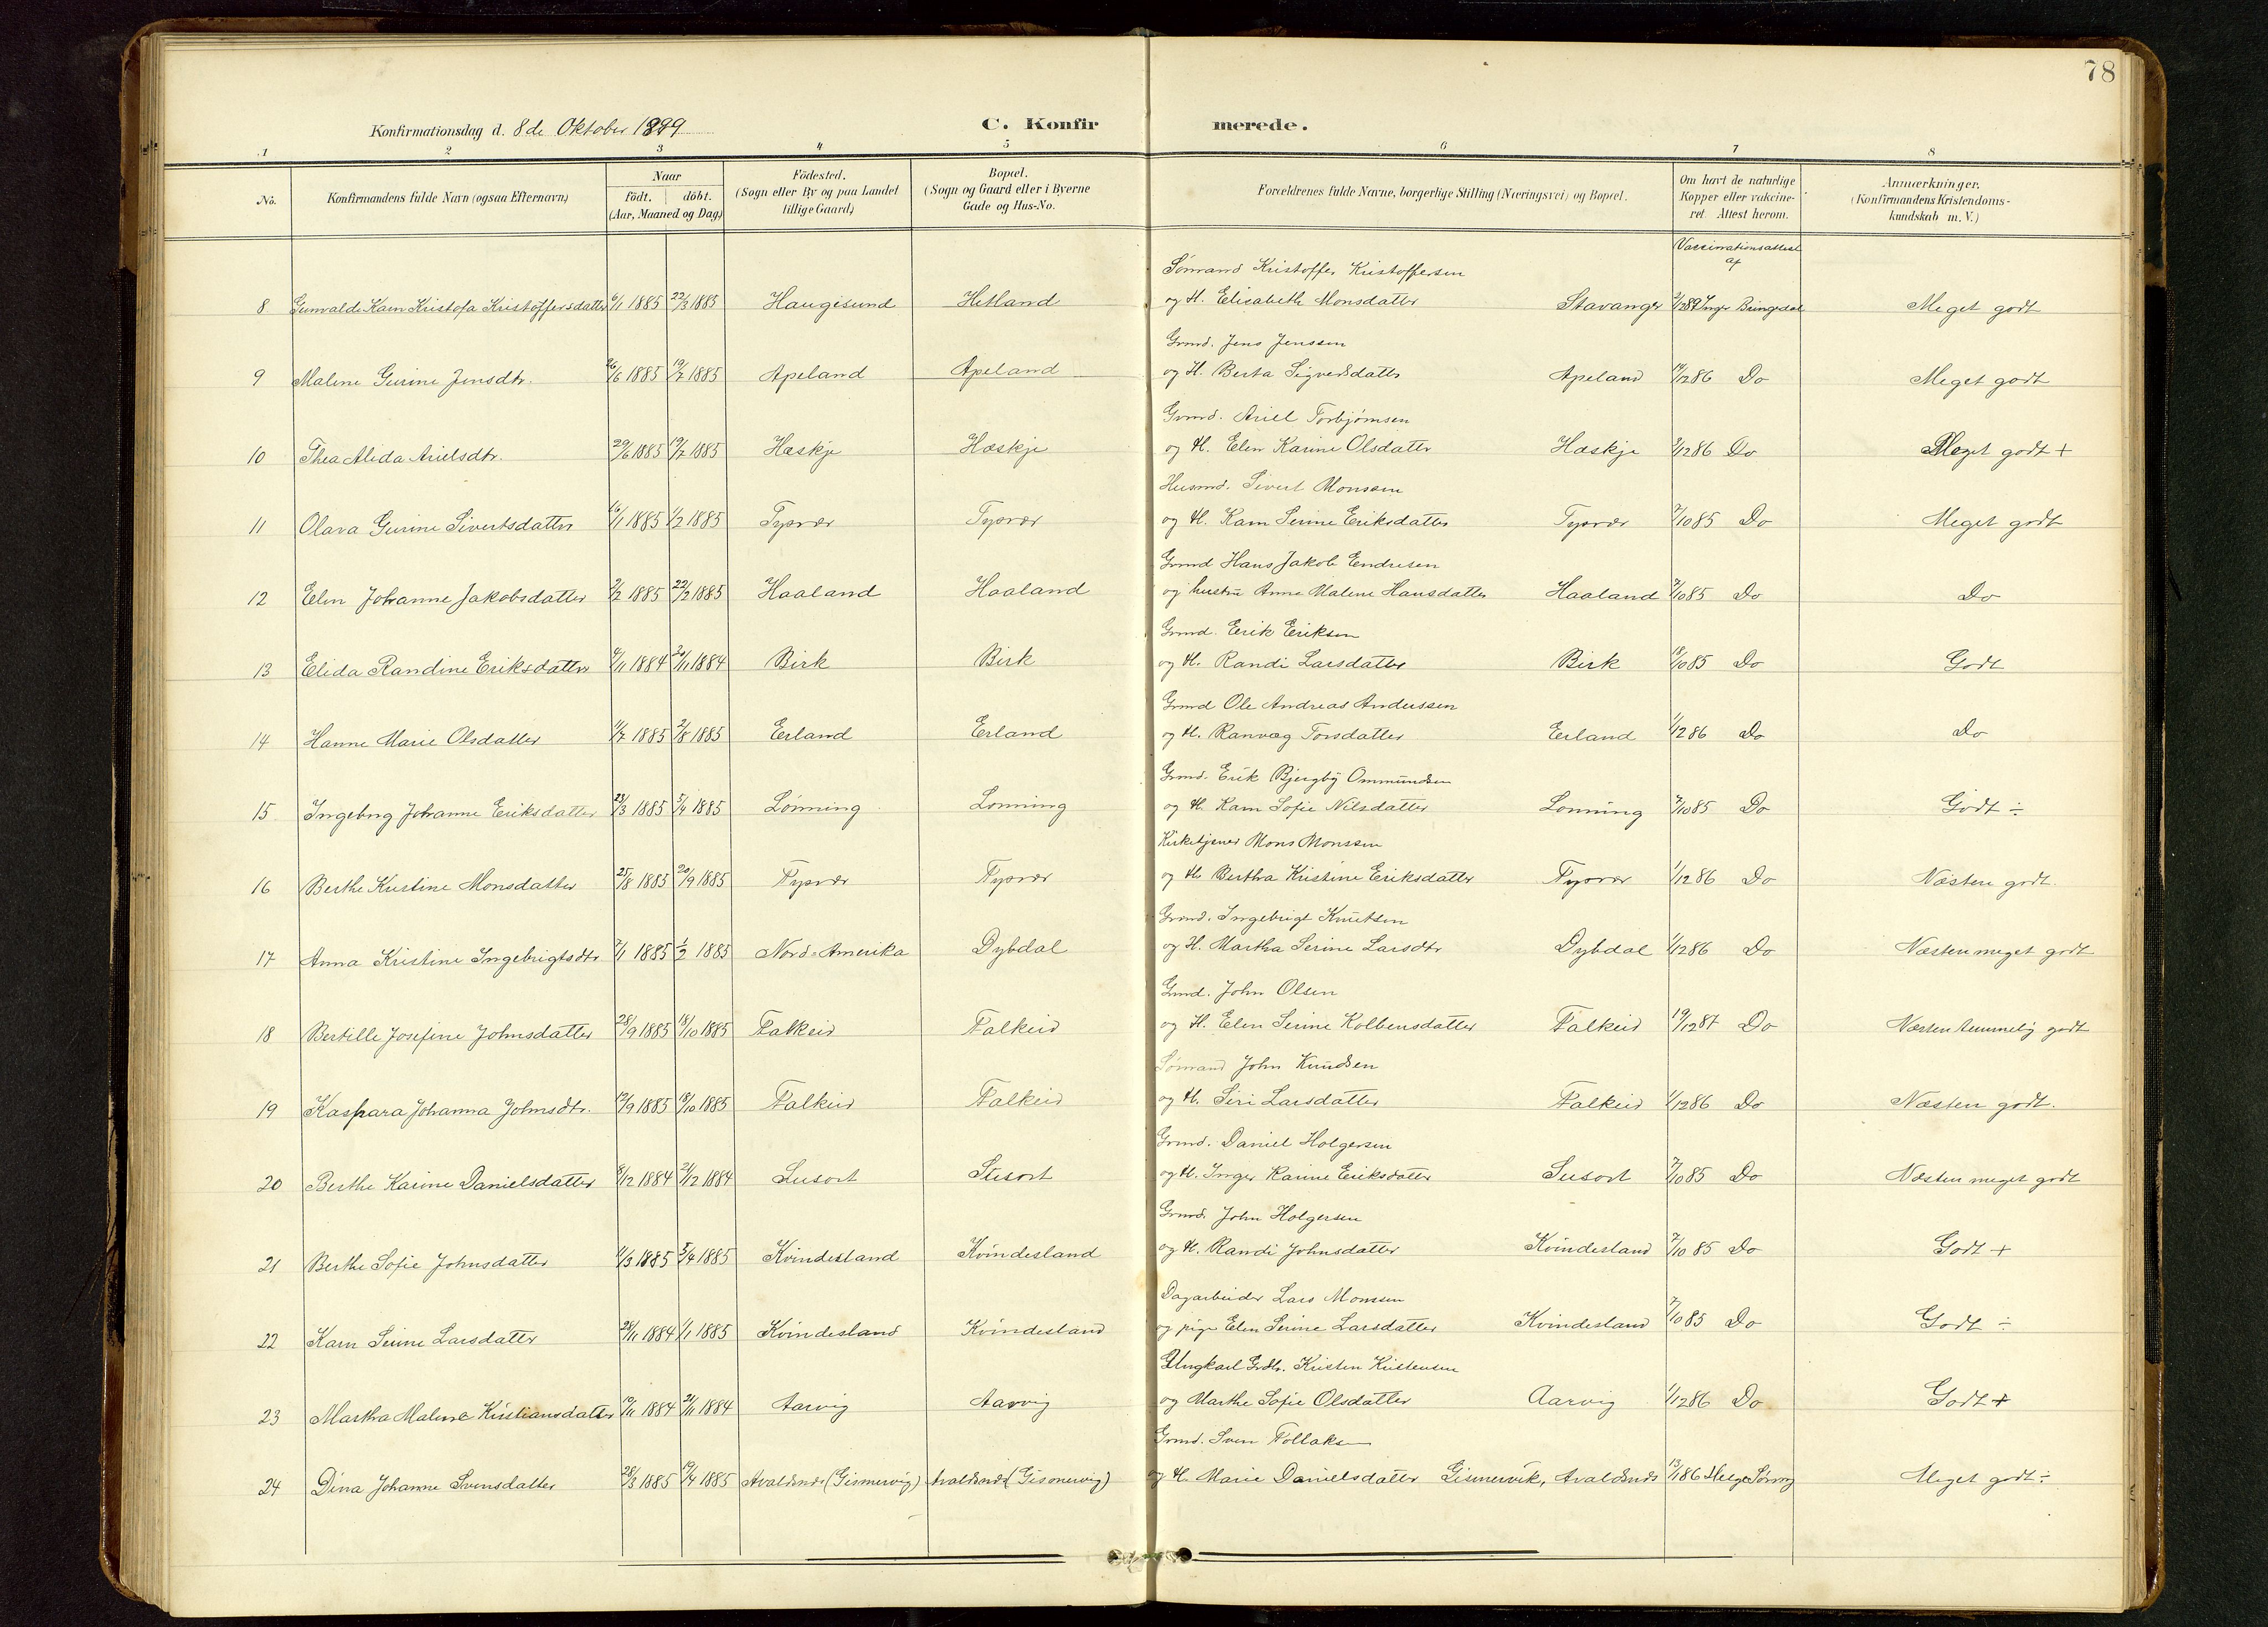 78
Konfirmationsdag d. 8de Oktober 1899
C. Konfirmerede.
1 2 3 4 5 6 7 8
No.
Konfirmandens fulde Navn (ogsaa Efternavn)
Naar
födt. döbt.
(Aar, Maaned og Dag)
Födested.
(Sogn eller By og paa Landet
tillige Gaard)
Bopæl.
(Sogn og Gaard eller i Byerne
Gade og Hus-No.
Forældrenes fulde Navne, borgerlige Stilling (Næringsvei) og Bopæl.
Om havt de naturlige
Kopper eller vakcine-
ret. Attest herom.
Anmærkninger.
(Konfirmandens Kristendoms-
kundskab m. V.)
Vaccinationsattest
af
Sømand Kristoffer Kristoffersen
8 Gunvalde Karn Kristofa Kristoffersdatter 6/1 1885 22/3 1885 Haugesund Hetland og H. Elisabeth Monsdatter Stavanger Inger Bringedal Meget godt
Grmd. Jens Jenssen
9 Malene Gurine Jensdtr. 26/6 1885 19/7 1885 Apeland Apeland og H. Berta Sigvedsdatter Apeland 1286 Do Meget godt
Grmd. Ariel Torbjørnsen
10 Thea Alida Arielsdtr. 29/6 1885 19/7 1885 Hæskje Hæskje og H. Elen Karine Olsdatter Hæskje 1286 Do Meget godt +
Husmd. Sivert Monsen
11 Olava Gurine Sivertsdatter 16/1 1885 1/2 1885 Tysvær Tysvær og H. Karn Serine Eriksdatter Tysvær 7/10 85 Do Meget godt
Grmd Hans Jakob Endresen
12 Elen Johanne Jakobsdatter 2/2 1885 22/2 1885 Haaland Haaland og hustru Anne Malene Hansdatter Haaland 7/10 85 Do Do
Grmd. Erik Eriksen
13 Elida Randine Eriksdatter 9/11 1884 30/11 1884 Birk Birk og H. Randi Larsdatter Birk 18/10 85 Do Godt
Grmd Ole Andreas Anderssen
14 Hanne Marie Olsdatter 11/7 1885 2/8 1885 Erland Erland og H. Ranvæg Torsdatter Erland 1/12 86 Do Do
Grmd. Erik Bjergby Ommundsen
15 Ingebrg Johanne Eriksdatter 23/3 1885 5/4 1885 Lønning Lonning og H. Karn Sofie Nilsdatter Lonning 7/10 85 Do Godt ÷
Kirketjener Mons Monssen
16 Berthe Kristine Monsdatter 25/8 1885 20/9 1885 Tysvær Tysvær og H. Bertha Kristine Eriksdatter Tysvær 1/12 86 Do Næsten godt.
Grmd. Ingebrigt Knutsen
17 Anna Kristine Ingebrigtsdtr. 7/1 1885 1/2 1885 Nord-Amerika Dybdal og H. Martha Serine Larsdtr Dybdal 1/12 86 Do Næsten meget godt
Grmd. John Olsen
18 Bertille Josefine Johnsdatter 28/9 1885 18/10 1885 Falkeid Falkeid og H. Elen Serine Kolbensdatter Falkeid 19/12 87 Do Næsten temmelig godt
Sømand John Knudsen
19 Kaspara Johanna Johnsdtr. 19/9 1885 18/10 1885 Falkeid Falkeid og H. Siri Larsdatter Falkeid 1/12 86 Do Næsten godt.
Grmd. Daniel Holgersen
20 Berthe Karine Danielsdatter 8/12 1884 21/12 1884 Susort Susort og H. Inger Karine Eriksdatter Susort 7/10 85 Do Næsten meget godt
Grmd. John Holgersen
21 Berthe Sofie Johnsdatter 11/3 1885 5/4 1885 Kvindesland Kvindesland og H. Randi Johnsdatter Kvindesland 7/10 85 Do Godt +
Dagarbeider Lars Monssen
22 Karn Serine Larsdatter 28/11 1884 1/1 1885 Kvindesland Kvindesland og pige Elen Serine Larsdatter Kvindesland 7/10 85 Do Godt ÷
Ungkarl Grdbr. Kristen Kristensen
23 Martha Malene Kristiansdatter 10/11 1884 21/11 1884 Aarvig Aarvig og Marthe Sofie Olsdatter Aarvig 1/12 86 Do Godt +
Grmd. Sven Tollaksen
24 Dina Johanne Svensdatter 28/3 1885 19/4 1885 Avaldsnes (Gismervig) Avaldsnes (Gismervig) og H. Marie Danielsdatter Gismervik, Avaldsnes 13/1 86 Helge Meget godt ÷